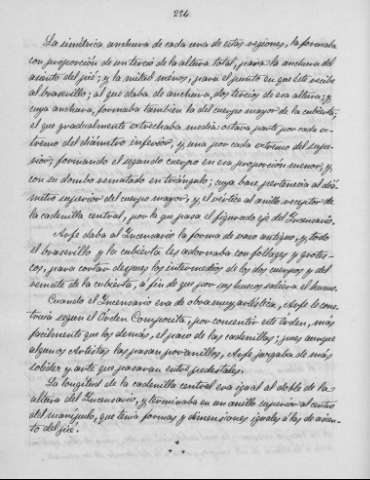 224
La simétrica anchura de cada una de estas regiones, la formaba
con proporción de un tercio de la altura total, para la anchura del
asiento del pié; y la mitad menos, para el punto en que éste recibe
al braserillo; al que daba de anchura, dos tercios de esa altura; y
cuya anchura, formaba también la del cuerpo mayor de la cubierta;
el que gradualmente estrechaba media octava parte por cada ex-
tremo del diámetro inferior, y una por cada extremo del supe-
rior; formando el segundo cuerpo en esa proporción menor, y
con su domo rematado en triángulo; cuya base pertenecia al diá-
metro superior del cuerpo mayor, y el vértice al anillo receptor de
la cadenilla central, por la que pasa el figurado eje del Incensario.
Arfe daba al Incensario la forma de vaso antiguo, y todo
el braserillo y la cubierta les adornaba con follages y grotes-
cos, para cortar despues los intermedios de los dos cuerpos y del
remate de la cubierta, a fin de que por sus huecos saliera el humo.
Cuando el Incensario era de obra muy artística, Arfe le cons-
truia según el Orden Composito, por consentir este Orden, más
facilmente que los demás, el paso de las cadenillas; pues aunque
algunos Artistas las pasan por anillos, Arfe juzgaba de más
solidez y arte que pasaran entre pedestales.
La longitud de la cadenilla central era igual al doble de la
altura del Incensario, y terminaba en un anillo superior al centro
del manipulo, que tenia formas y dimensiones iguales á las de asien-
to del pié.